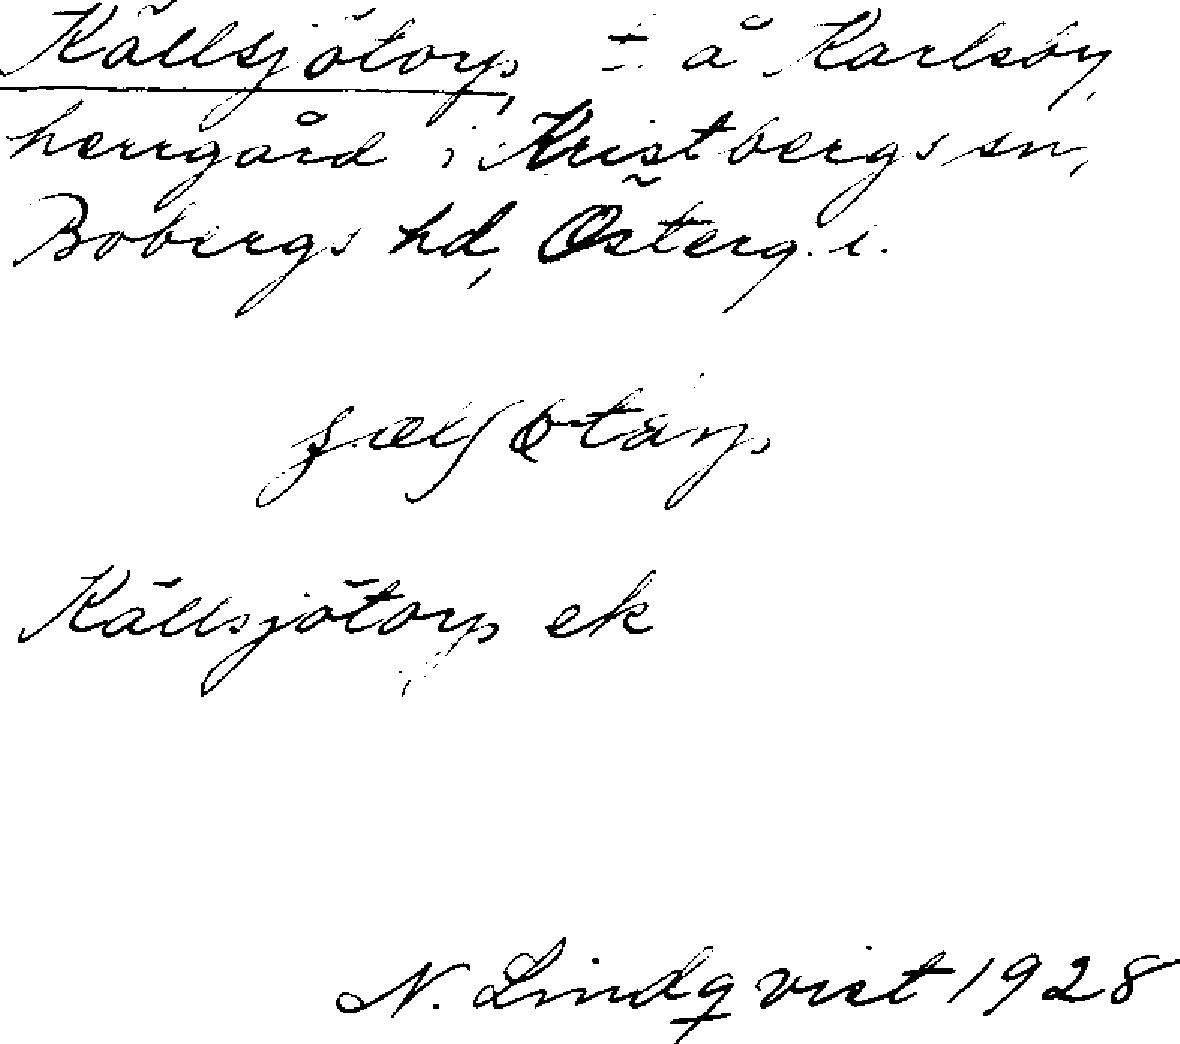 Källsjötorp, t. å Karlsby
herrgård i Kristbergs sn,
Bobergs hd, Österg. l.
Källsjötorp ek
N. Lindqvist 1928